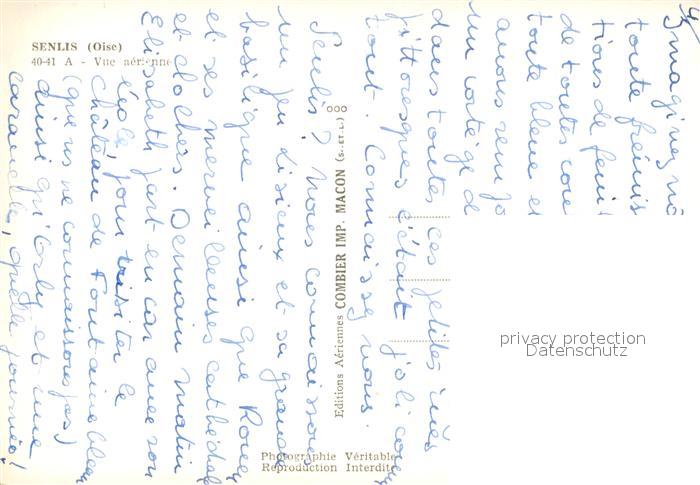 SENLIS (Oise)
40-41 A - Vue aérienne
Imaginez
toute
tions de
de toutes
toute bleue et
avons
un cortège d
dans toutes ces petites
pittoresques c'était joli
tout. Connaissez vous
Senlis? nous connaisso
un peu Lisieux et sa grande
basilique ainsi que Rouen
et ses merveilleuses cathédrale
et clochers. Demain matin
Elisabeth part en car avec son
école, pour visiter le
château de Fontainebleau
(que ns ne connaissons pas)
ainsi qu'Orly et une
caravelle, quelle journée!
Editions Aériennes COMBIER IMP. MACON (S.-ET-L.)
Photographie Véritable
Reproduction Interdite
privacy protection
Datenschutz